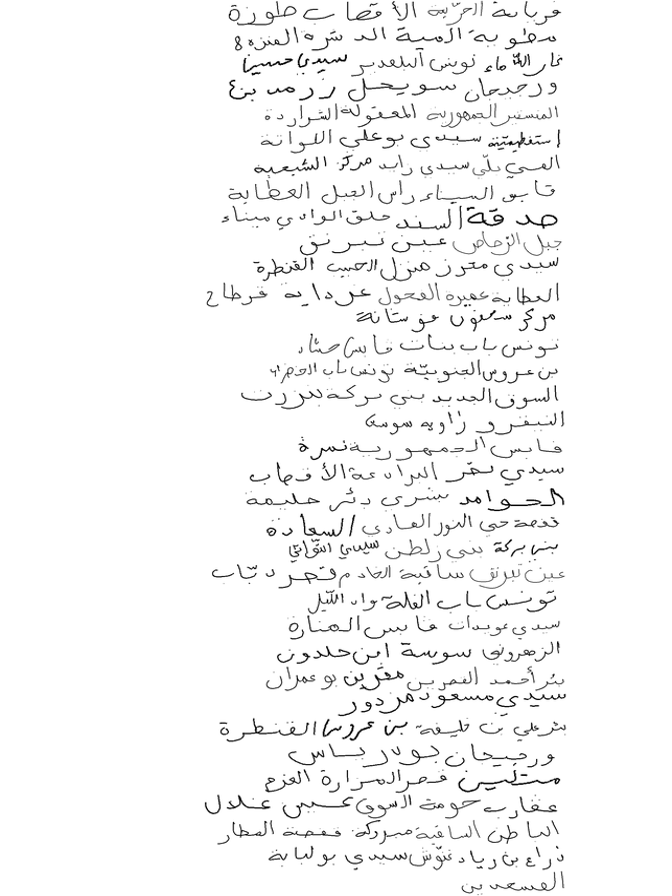 قربانة الحرّية الأقصاب طورة
مطوية المية الدشرة المنزه 8
غار الماء تونس البلفدير سيدي حسين
ورجيجان سويحل رزمد بنع
المنستير الجمهورية المعقولة الشراردة
سيدي بوعلي اللواتة
سيدي زايد مركز الشعيبية
قابس الميناء راس الجبل العطاية
صدقة السند حلق الوادي ميناء
جبل الرصاص عين تبرنق
سيدي محرز منزل الحبيب القنطرة
العطاية عميرة الفحول غرداية قرطاج
مركز سحنون غوستانة
تونس باب بنات قابس حشاد
بن عروس الجنوبيّة تونس باب الخضراء
السوق الجديد بني بركة بنزرت
النبفرو زاوية سوسة
قابس الجمهورية نمرة
سيدي نصر البرادعة الأقصاب
الحوامد بشري دڨر حليمة
قفصة حي النور الهادي السعادة
بني بركة بني زلطن سيدي التواتي
عين تبرنق ساقية الخادم قصر دبّاب
تونس باب الفلة واد الليل
سيدي عويدات قابس المنارة
الزهروني سوسة ابن خلدون
بئر أحمد القصرين مقرين بوعمران
سيدي مسعود مزدور
بئر علي بن خليفة بن عروس القنطرة
ورجيجان بودرباس
متلّين قصر المرارة القزع
عقارب حومة السوق عميس علال
الباطن الساقية مبروكة قفصة المطار
ذراع بن زياد غنّوش سيدي بولبابة
القسعديين